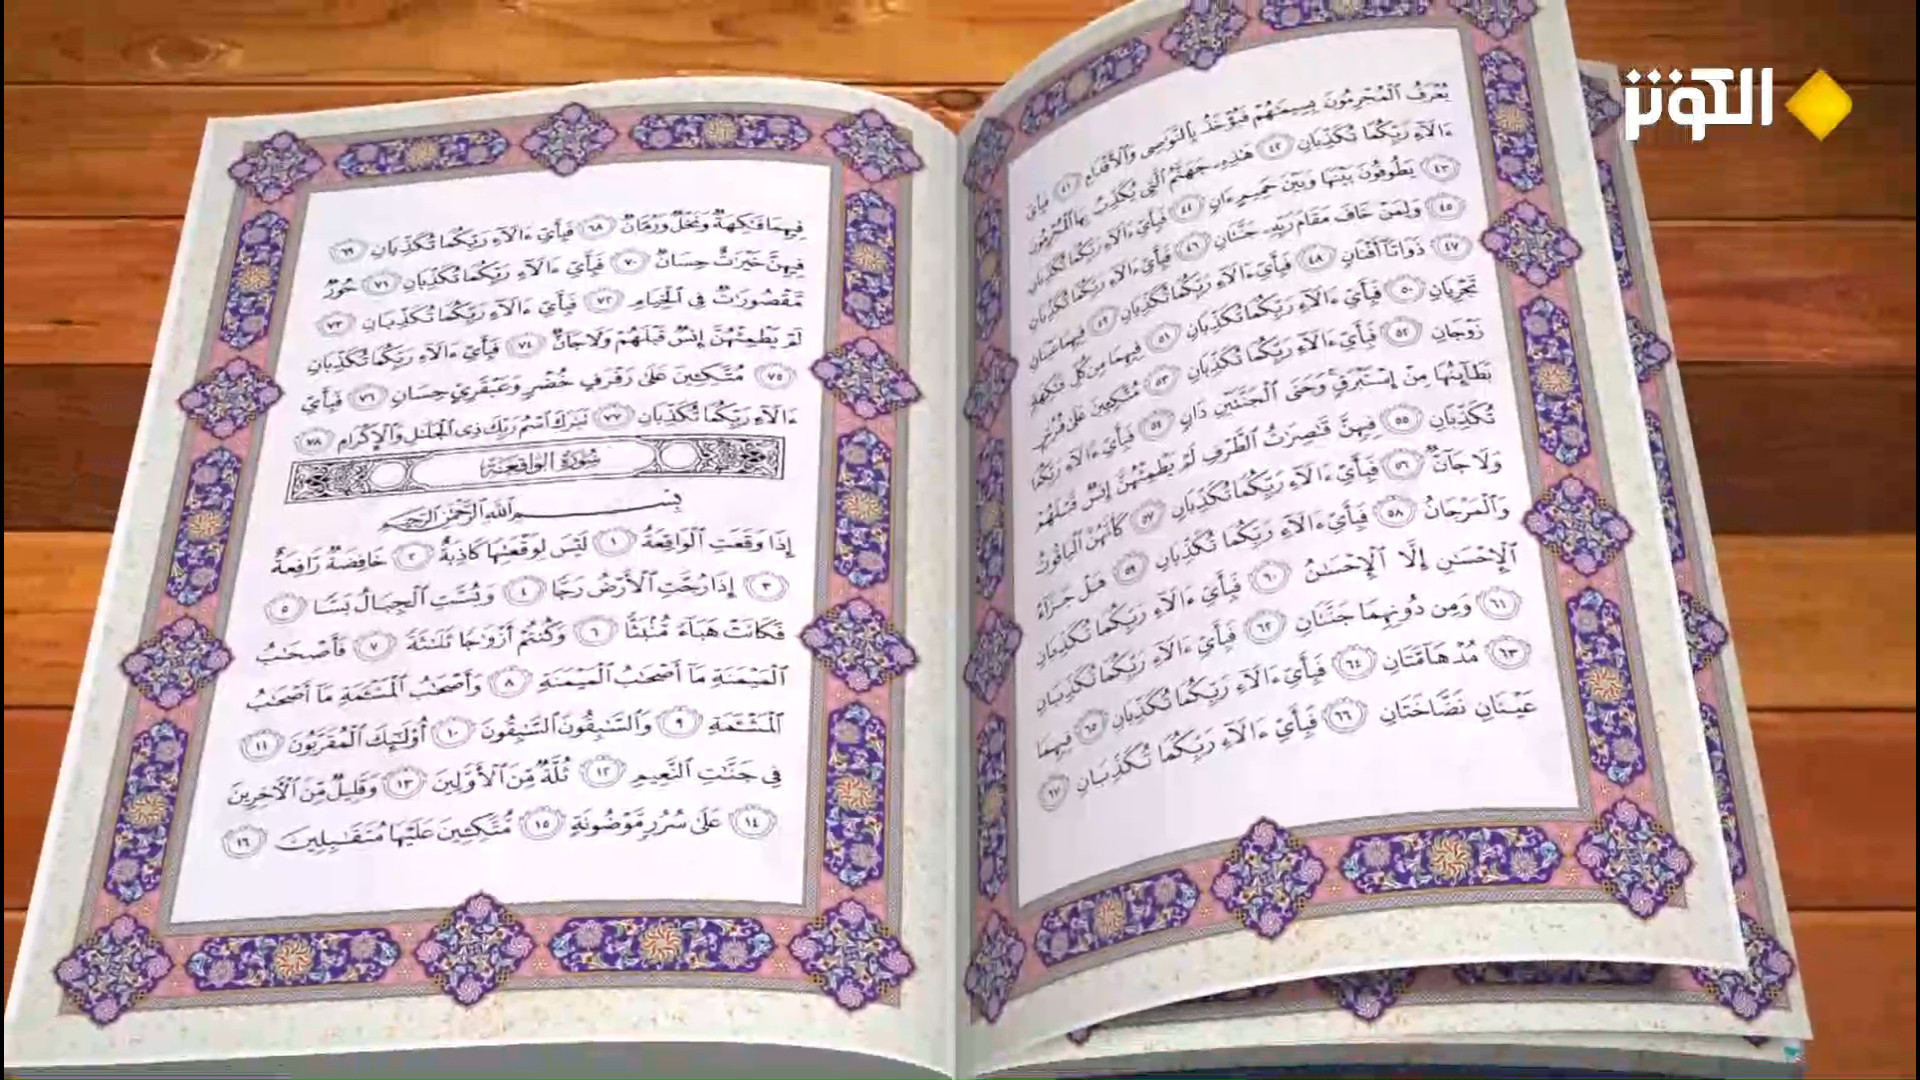 الكوثر
يُعْرَفُ ٱلْمُجْرِمُونَ بِسِيمَٰهُمْ فَيُؤْخَذُ بِٱلنَّوَٰصِى وَٱلْأَقْدَامِ ٤١ فَبِأَىِّ
ءَالَآءِ رَبِّكُمَا تُكَذِّبَانِ ٤٢ هَٰذِهِۦ جَهَنَّمُ ٱلَّتِى يُكَذِّبُ بِهَا ٱلْمُجْرِمُونَ
٤٣ يَطُوفُونَ بَيْنَهَا وَبَيْنَ حَمِيمٍ ءَانٍ ٤٤ فَبِأَىِّ ءَالَآءِ رَبِّكُمَا تُكَذِّبَانِ
٤٥ وَلِمَنْ خَافَ مَقَامَ رَبِّهِۦ جَنَّتَانِ ٤٦ فَبِأَىِّ ءَالَآءِ رَبِّكُمَا تُكَذِّبَانِ
٤٧ ذَوَاتَآ أَفْنَانٍ ٤٨ فَبِأَىِّ ءَالَآءِ رَبِّكُمَا تُكَذِّبَانِ ٤٩ فِيهِمَا عَيْنَانِ
تَجْرِيَانِ ٥٠ فَبِأَىِّ ءَالَآءِ رَبِّكُمَا تُكَذِّبَانِ ٥١ فِيهِمَا مِن كُلِّ فَٰكِهَةٍ
زَوْجَانِ ٥٢ فَبِأَىِّ ءَالَآءِ رَبِّكُمَا تُكَذِّبَانِ ٥٣ مُتَّكِـِٔينَ عَلَىٰ فُرُشٍۭ
بَطَآئِنُهَا مِنْ إِسْتَبْرَقٍ وَجَنَى ٱلْجَنَّتَيْنِ دَانٍ ٥٤ فَبِأَىِّ ءَالَآءِ رَبِّكُمَا
تُكَذِّبَانِ ٥٥ فِيهِنَّ قَٰصِرَٰتُ ٱلطَّرْفِ لَمْ يَطْمِثْهُنَّ إِنسٌ قَبْلَهُمْ
وَلَا جَآنٌّ ٥٦ فَبِأَىِّ ءَالَآءِ رَبِّكُمَا تُكَذِّبَانِ ٥٧ كَأَنَّهُنَّ ٱلْيَاقُوتُ
وَٱلْمَرْجَانُ ٥٨ فَبِأَىِّ ءَالَآءِ رَبِّكُمَا تُكَذِّبَانِ ٥٩ هَلْ جَزَآءُ
ٱلْإِحْسَٰنِ إِلَّا ٱلْإِحْسَٰنُ ٦٠ فَبِأَىِّ ءَالَآءِ رَبِّكُمَا تُكَذِّبَانِ
٦١ وَمِن دُونِهِمَا جَنَّتَانِ ٦٢ فَبِأَىِّ ءَالَآءِ رَبِّكُمَا تُكَذِّبَانِ
٦٣ مُدْهَآمَّتَانِ ٦٤ فَبِأَىِّ ءَالَآءِ رَبِّكُمَا تُكَذِّبَانِ ٦٥ فِيهِمَا
عَيْنَانِ نَضَّاخَتَانِ ٦٦ فَبِأَىِّ ءَالَآءِ رَبِّكُمَا تُكَذِّبَانِ ٦٧
فِيهِمَا فَٰكِهَةٌ وَنَخْلٌ وَرُمَّانٌ ٦٨ فَبِأَىِّ ءَالَآءِ رَبِّكُمَا تُكَذِّبَانِ ٦٩
فِيهِنَّ خَيْرَٰتٌ حِسَانٌ ٧٠ فَبِأَىِّ ءَالَآءِ رَبِّكُمَا تُكَذِّبَانِ ٧١ حُورٌ
مَّقْصُورَٰتٌ فِى ٱلْخِيَامِ ٧٢ فَبِأَىِّ ءَالَآءِ رَبِّكُمَا تُكَذِّبَانِ ٧٣
لَمْ يَطْمِثْهُنَّ إِنسٌ قَبْلَهُمْ وَلَا جَآنٌّ ٧٤ فَبِأَىِّ ءَالَآءِ رَبِّكُمَا تُكَذِّبَانِ
٧٥ مُتَّكِـِٔينَ عَلَىٰ رَفْرَفٍ خُضْرٍ وَعَبْقَرِىٍّ حِسَانٍ ٧٦ فَبِأَىِّ
ءَالَآءِ رَبِّكُمَا تُكَذِّبَانِ ٧٧ تَبَٰرَكَ ٱسْمُ رَبِّكَ ذِى ٱلْجَلَٰلِ وَٱلْإِكْرَامِ ٧٨
سُورَةُ الوَاقِعَةِ
بِسْمِ ٱللَّهِ ٱلرَّحْمَٰنِ ٱلرَّحِيمِ
إِذَا وَقَعَتِ ٱلْوَاقِعَةُ ١ لَيْسَ لِوَقْعَتِهَا كَاذِبَةٌ ٢ خَافِضَةٌ رَّافِعَةٌ
٣ إِذَا رُجَّتِ ٱلْأَرْضُ رَجًّا ٤ وَبُسَّتِ ٱلْجِبَالُ بَسًّا ٥
فَكَانَتْ هَبَآءً مُّنۢبَثًّا ٦ وَكُنتُمْ أَزْوَٰجًا ثَلَٰثَةً ٧ فَأَصْحَٰبُ
ٱلْمَيْمَنَةِ مَآ أَصْحَٰبُ ٱلْمَيْمَنَةِ ٨ وَأَصْحَٰبُ ٱلْمَشْـَٔمَةِ مَآ أَصْحَٰبُ
ٱلْمَشْـَٔمَةِ ٩ وَٱلسَّٰبِقُونَ ٱلسَّٰبِقُونَ ١٠ أُو۟لَٰٓئِكَ ٱلْمُقَرَّبُونَ ١١
فِى جَنَّٰتِ ٱلنَّعِيمِ ١٢ ثُلَّةٌ مِّنَ ٱلْأَوَّلِينَ ١٣ وَقَلِيلٌ مِّنَ ٱلْءَاخِرِينَ
١٤ عَلَىٰ سُرُرٍ مَّوْضُونَةٍ ١٥ مُّتَّكِـِٔينَ عَلَيْهَا مُتَقَٰبِلِينَ ١٦